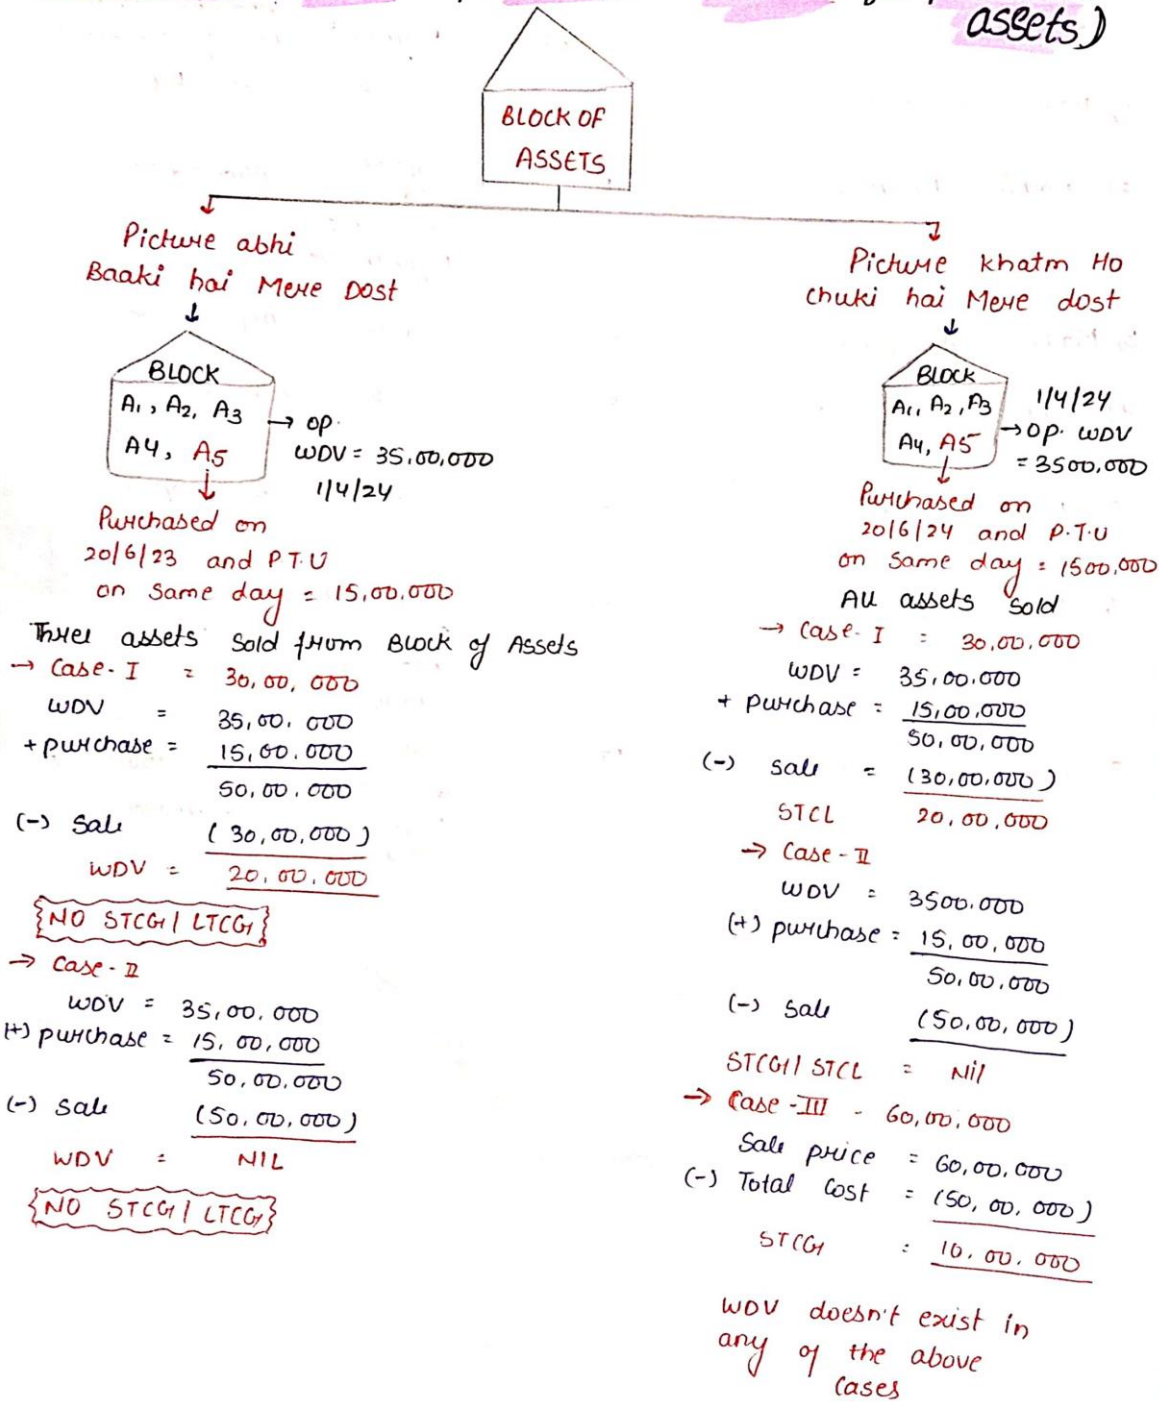 assets)
BLOCK OF
ASSETS
Picture abhi
Baaki hai Mere Dost
BLOCK
A1, A2, A3
A4, A5
→ OP.
WDV = 35,00,000
1/4/24
Purchased on
20/6/23 and P.T.U
on same day = 15,00,000
Three assets sold from Block of Assets
→ Case-I = 30,00,000
WDV = 35,00,000
+ purchase = 15,00,000
50,00,000
(-) Sale (30,00,000)
WDV = 20,00,000
{NO STCG/LTCG}
→ Case-II
WDV = 35,00,000
(+) purchase = 15,00,000
50,00,000
(-) Sale (50,00,000)
WDV = NIL
{NO STCG/LTCG}
Picture khatm Ho
chuki hai Mere dost
BLOCK
A1, A2, A3
A4, A5
1/4/24
→ OP. WDV
= 3500,000
Purchased on
20/6/24 and P.T.U
on same day = 1500,000
All assets sold
→ Case-I = 30,00,000
WDV = 35,00,000
+ purchase = 15,00,000
50,00,000
(-) Sale = (30,00,000)
STCL 20,00,000
→ Case-II
WDV = 3500,000
(+) purchase = 15,00,000
50,00,000
(-) Sale (50,00,000)
STCG/STCL = Nil
→ Case-III - 60,00,000
Sale price = 60,00,000
(-) Total cost = (50,00,000)
STCG = 10,00,000
WDV doesn't exist in
any of the above
cases